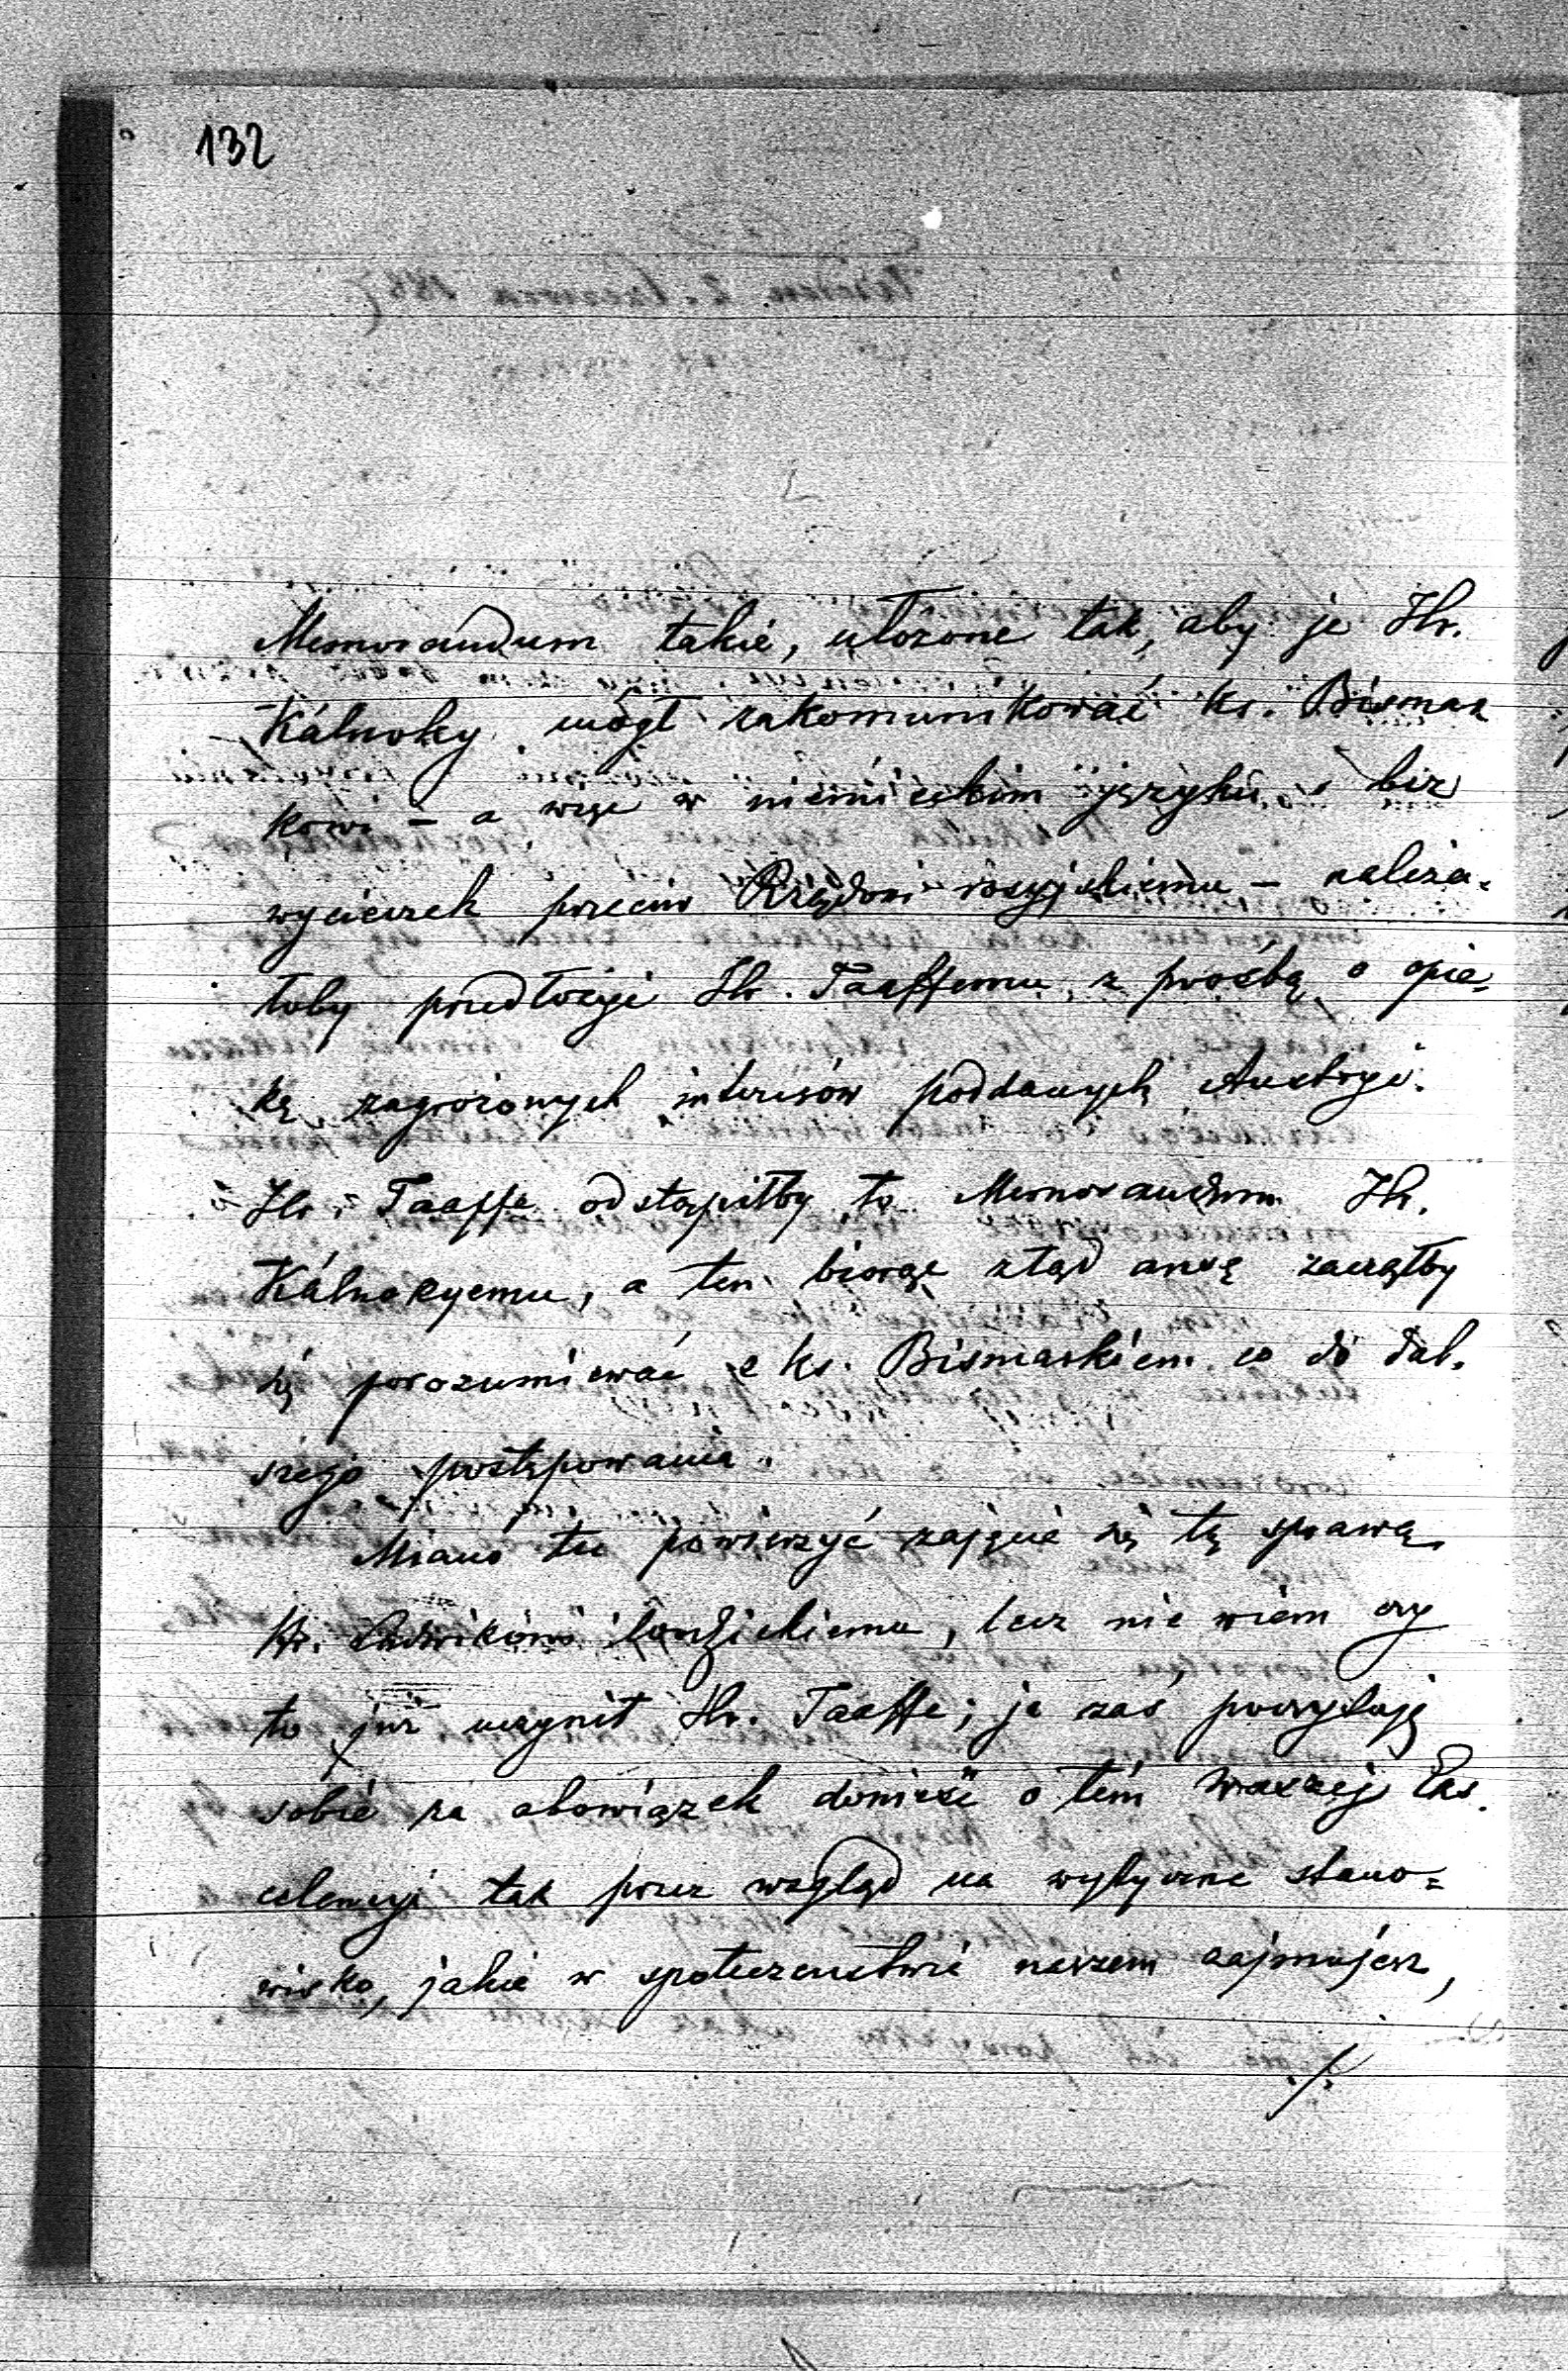 132
Memorandum takie, ułożone tak, aby je Hr.
Kálnoky mógł zakomunikować ks. Bismar
kowi – a więc w niemieckim języku i bez
wycieczek przeciw Rządowi rosyjskiemu – należa-
łoby przedłożyć Hr. Taaffemu z prośbą o opie-
kę zagrożonych interesów poddanych Austryi.
Hr. Taaffe odstąpiłby to Memorandum Hr.
Kálnokyemu, a ten biorąc ztąd ansę zacząłby
się porozumiewać z ks. Bismarkiem co do dal-
szego postępowania.
Miano tu powierzyć zajęcie się tą sprawą
Hr. Ludwikowi Wodzickiemu, lecz nie wiem czy
to już uczynił Hr. Taaffe; ja zaś poczytuję
sobie za obowiązek donieść o tém Waszej Eks.
celencyi tak przez wzgląd na wytyczne stano=
wisko, jakie w społeczeństwie naszem zajmujesz,
./.